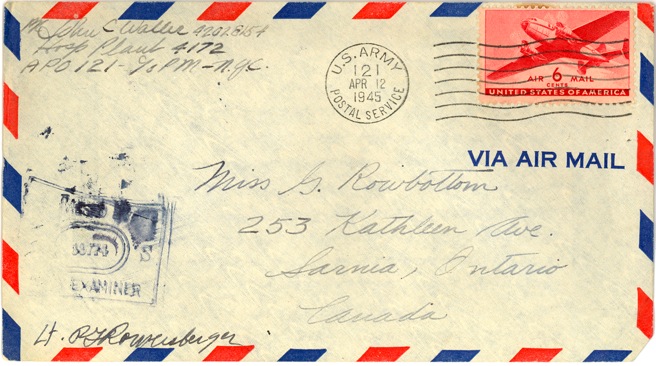 Pvt John C Waller 42026154
Hosp Plant 4172
APO 121 - % PM - N.Y.C.
U.S. ARMY
121
APR 12
1945
POSTAL SERVICE
AIR 6 MAIL
CENTS
UNITED STATES OF AMERICA
VIA AIR MAIL
Miss G. Rowbottom
253 Kathleen Ave.
Sarnia, Ontario
Canada
PASSED
S
EXAMINER
Lt.